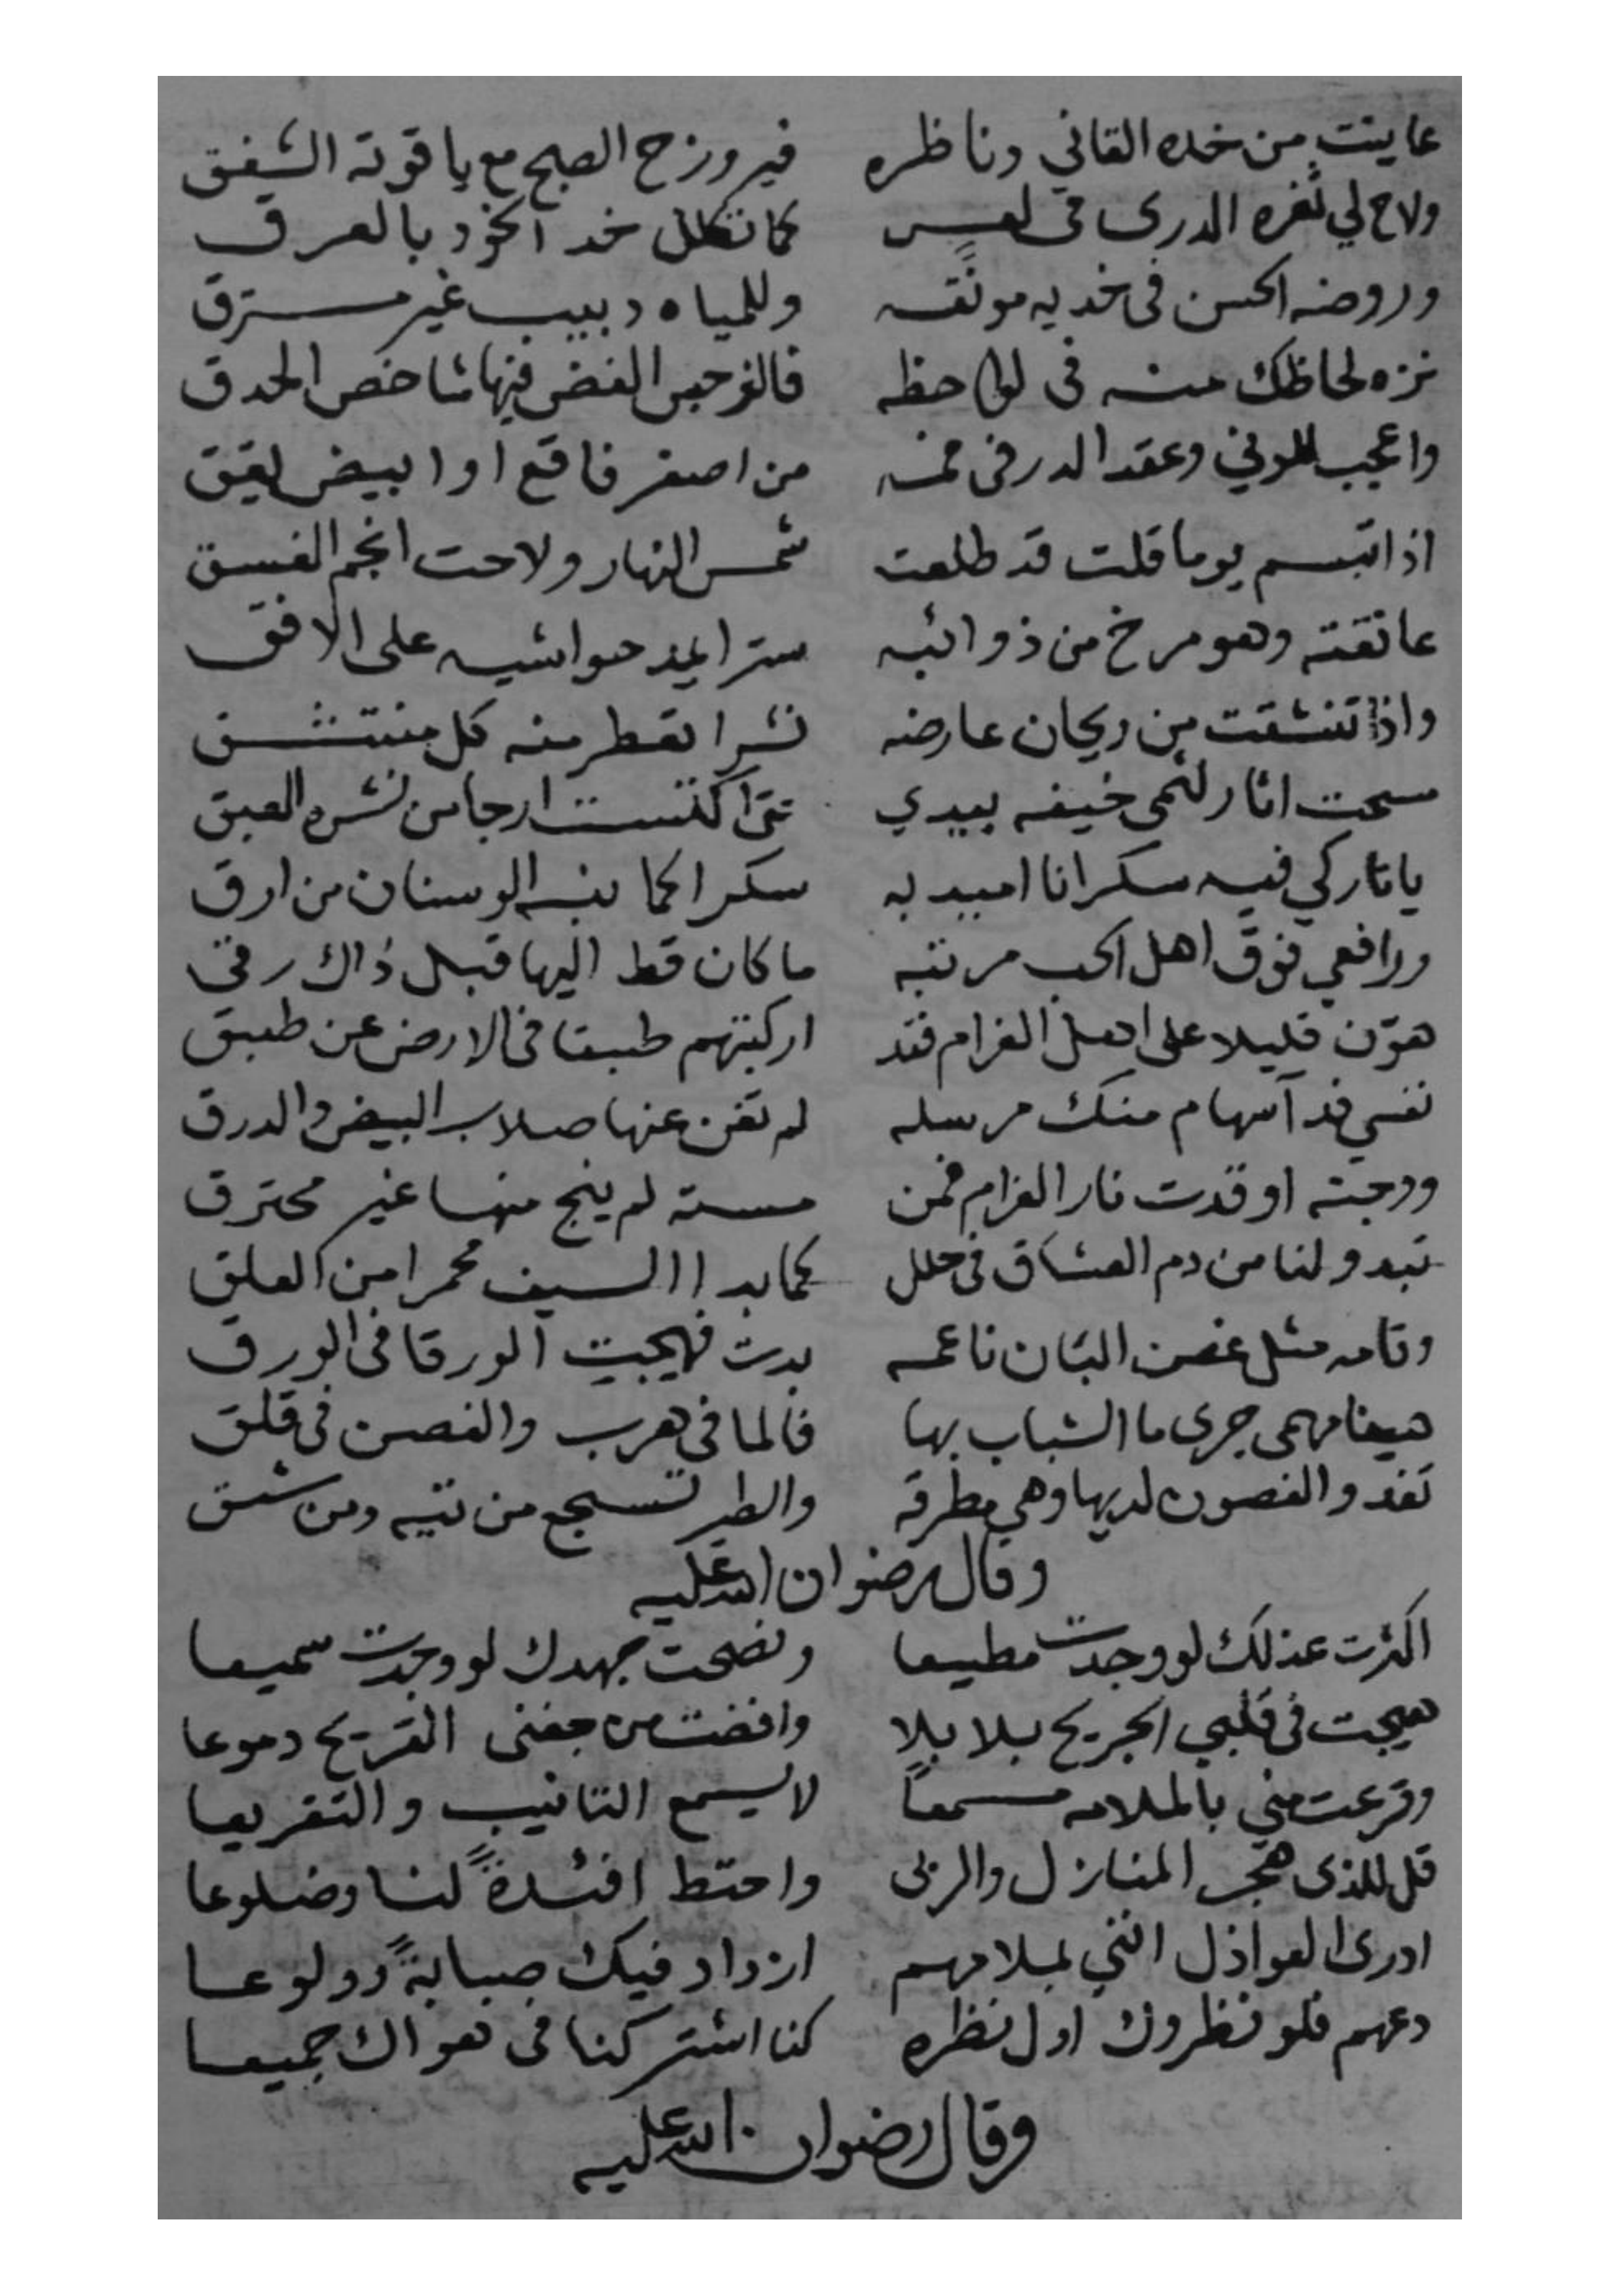 عاينت من خده القاني وناظره فيروزح الصبح مع ياقوتة الشفق
ولاح لي ثغره الدرى فى لعس كما تكلل خد الخود بالعرق
وروضه الحسن فى خديه مونقه وللمياه دبيب غير مسترق
نزه لحاظك منه فى لواحظه فالنرجس الغض فيها شاخص الحدق
واعجب للونى وعقد الدر فى فمه من اصفر فاقع او ابيض يقق
اذا تبسم يوما قلت قد طلعت شمس النهار ولاحت انجم الغسق
عانقته وهو مرخ من ذوائبه سترا يمد حواشيه على الافق
واذا تنشقت من ريحان عارضه نشرا تعطر منه كل منتشق
مسحت اثار لثمى خيفه بيدي حتى اكتست ارجا من نشره العبق
يا تاركي فيه سكرانا اميد به سكرا كما ينه الوسنان من ارق
ورافعي فوق اهل الحب مرتبه ما كان قط اليها قبل ذاك رقى
هوّن قليلا على اهل الغرام فقد اركبتهم طبقا فى الارض عن طبق
نفسي فدآ سهام منك مرسله لم تغن عنها صلاب البيض والدرق
ووجنته اوقدت نار الغرام فمن مسته لم ينج منها غير محترق
تبدو لنا من دم العشاق فى حلل كما بدا السيف محمرا من العلق
وقامه مثل غصن البان ناعمه بدت فهيجت الورقا فى الورق
هيفا مهمى جرى ما الشباب بها فالما فى هرب والغصن فى قلق
تغدو الغصون لديها وهي مطرقه والطير تسجع من تيه ومن شبق
وقال رضوان الله عليه
اكثرت عذلك لو وجدت مطيعا ونصحت جهدك لو وجدت سميعا
هيجت فى قلبي الجريح بلابلا وافضت من جفنى القريح دموعا
وقرعت مني بالملامه مسمعاً لا يسمع التانيب والتقريعا
قل للذى هجر المنازل والربى واحتط افئدةً لنا وضلوعا
ادرى العواذل اننى بملامهم ازداد فيك صبابةً وولوعا
دعهم فلو نظروك اول نظره كنا اشتركنا فى هواك جميعا
وقال رضوان الله عليه